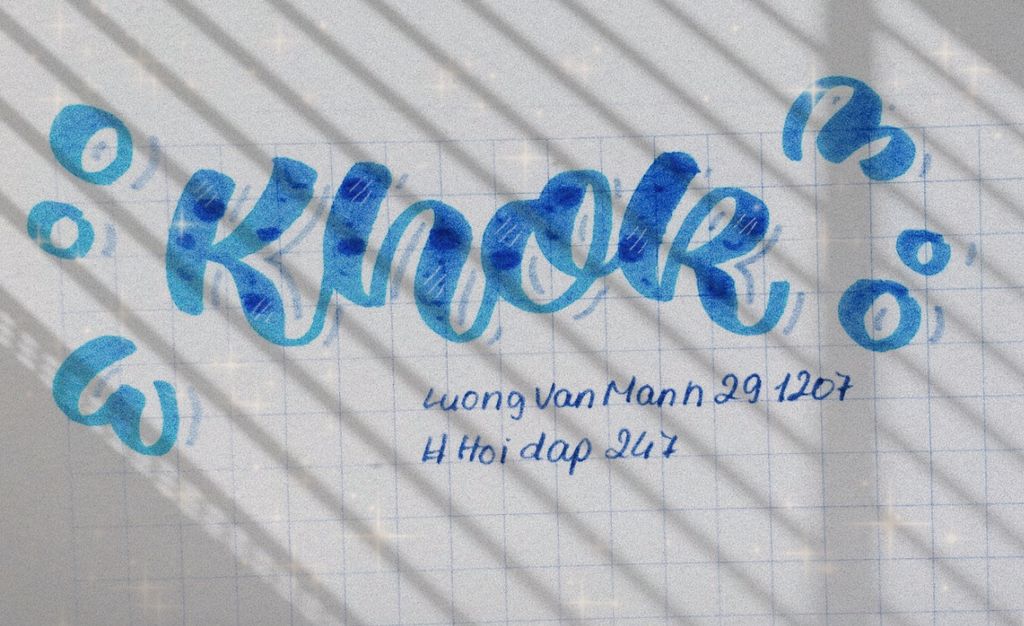 Khor
Luong Van Mann 29 1207
H Hoi dap 247